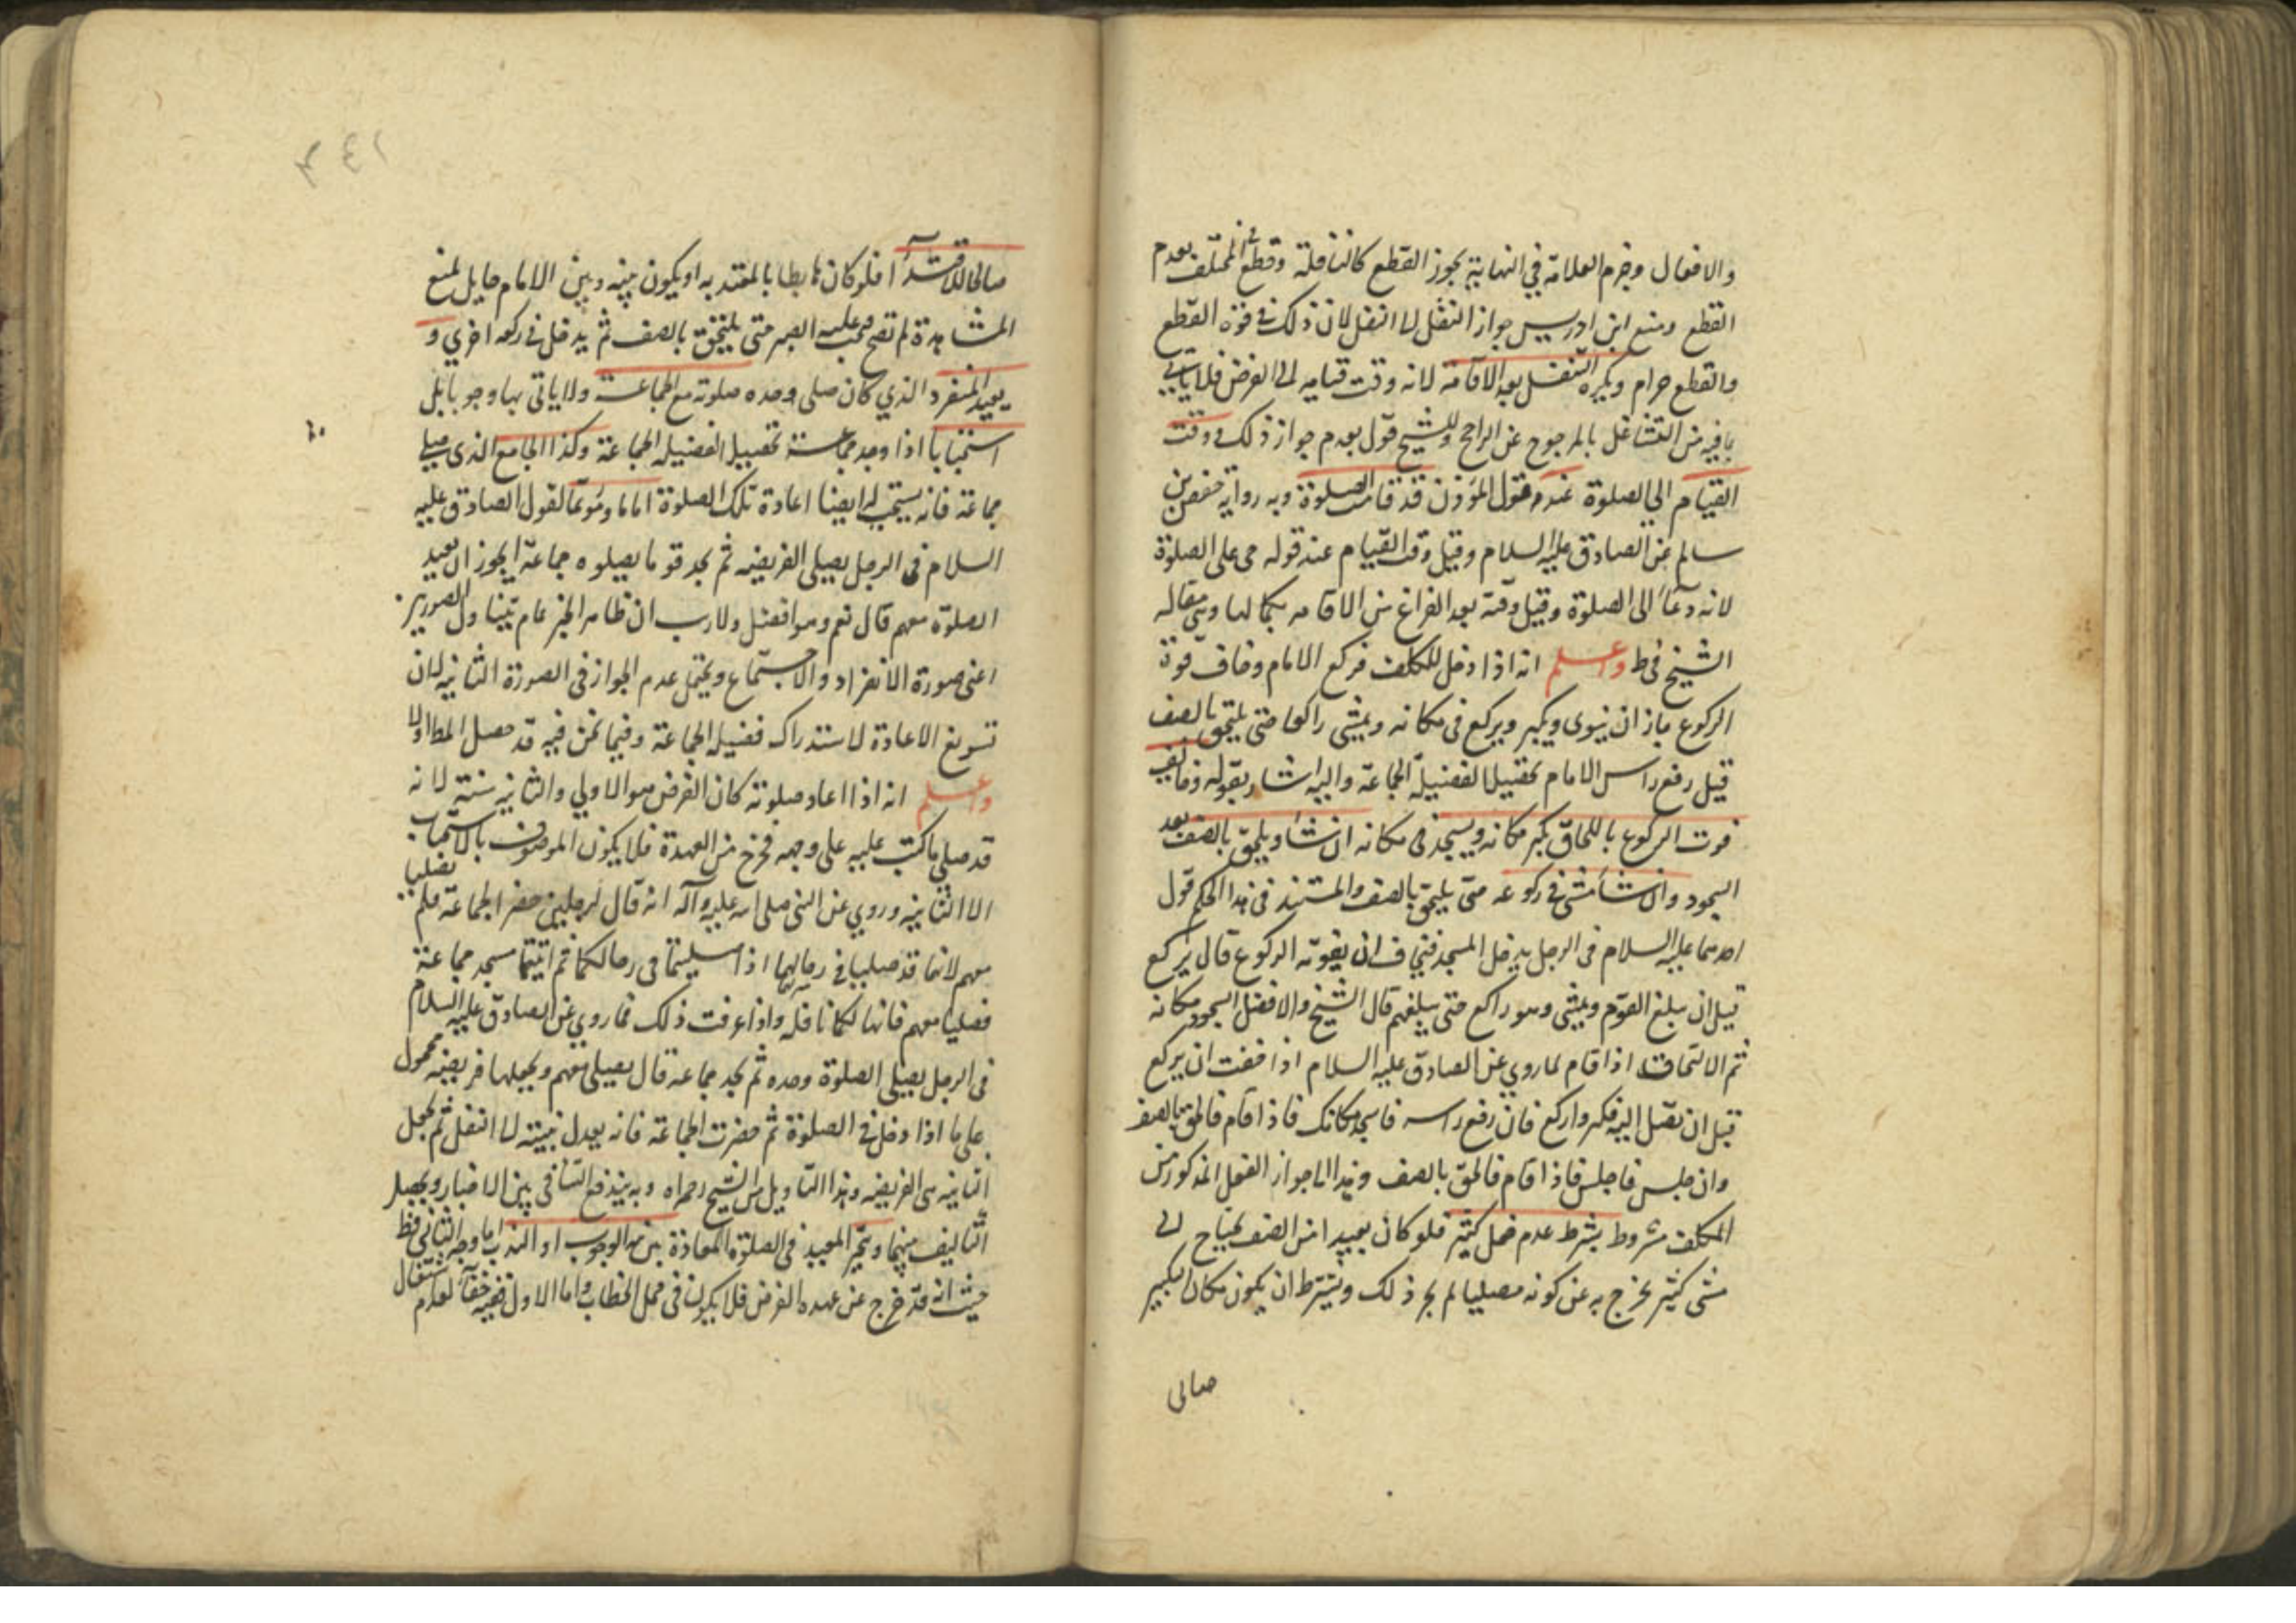 والافعال وجزم العلامة في النهاية بجوز القطع كالنافلة وقطع في المختلف بعدم
القطع ومنع ابن ادريس جواز النقل الى النفل لان ذلك في قوة القطع
والقطع حرام ويكره التنفل بعد الاقامة لانه وقت قيامه الى الفرض فلا ياتي
بافيه من التشاغل بالمرجوح عن الراجح وللشيخ قول بعدم جواز ذلك ووقت
القيام الى الصلوة عند قول المؤذن قد قامت الصلوة وبه رواية حفص بن
سالم عن الصادق عليه السلام وقيل وقت القيام عند قوله حى على الصلوة
لانه دعاء الى الصلوة وقيل وقته بعد الفراغ من الاقامه بكمالها وهى مقاله
الشيخ في ط واعلم انه اذا دخل المكلف فركع الامام وخاف فوة
الركوع جاز ان ينوى ويكبر ويركع فى مكانه ويمشى راكعا حتى يلتحق بالصف
قبل رفع راس الامام تحصيلا لفضيلة الجماعة واليه اشار بقوله وخايف
فوت الركوع باللحاق يكبر مكانه ويسجد فى مكانه ان شاء ويلحق بالصف بعد
السجود وان شاء مشى في ركوعه حتى يلحق بالصف والمستند فى هذا الحكم قول
احدهما عليه السلام فى الرجل يدخل المسجد فيخاف ان يفوته الركوع قال يركع
قبل ان يبلغ القوم ويمشى وهو راكع حتى يبلغهم قال الشيخ والافضل السجود مكانه
ثم الالتحاق اذا قام لما روي عن الصادق عليه السلام اذا خفت ان يركع
قبل ان تصل اليه فكبر واركع فان رفع راسه فاسجد مكانك فاذا قام فالحق بالصف
وان جلس فاجلس فاذا قام فالحق بالصف وهذا جواز الفعل المذكور من
المكلف مشروط بشرط عدم فعل كثير فلو كان بعيدا من الصف يحتاج الى
مشى كثير يخرج به عن كونه مصليا لم يجز ذلك ويشترط ان يكون مكان التكبير
صالى
١٤٢
صالحا للاقتداء فلو كان هابطا بالمعتد به او يكون بينه وبين الامام حايل يمنع
المشاهدة لم تصح فيجب عليه الصبر حتى يلتحق بالصف ثم يدخل في ركعه اخرى و
يعيد المنفرد الذي كان صلى وحده صلوته مع الجماعة ولا ياتى بها وجوبا بل
استحبابا اذا وجد جماعة تحصيلا لفضيله الجماعة وكذا الجامع الذى صلى
جماعة فانه يستحب له ايضا اعادة تلك الصلوة اماما ومؤتما لقول الصادق عليه
السلام فى الرجل يصلى الفريضه ثم يجد قوما يصلوه جماعة ايجوز ان يعيد
الصلوة معهم قال نعم وهو افضل ولا ريب ان ظاهر الخبر عام الصورتين
اعنى صورة الانفراد والاجتماع ويحتمل عدم الجواز فى الصورة الثانيه لان
تسويغ الاعادة لاستدراك فضيلة الجماعة وفيما نحن فيه قد حصل اولا
واعلم انه اذا اعاد صلوته كان الفرض هو الاولى والثانيه سنة لانه
قد صلى ما كتب عليه على وجهه فخرج من العهدة فلا يكون الموصوف بالاستحباب
الا الثانيه وروي عن النبى صلى الله عليه وآله انه قال لرجلين حضرا الجماعة فلم يصليا
معهم لانهما قد صليا في رحالهما اذا صليتما فى رحالكما ثم اتيتما مسجد جماعة
فصليا معهم فانها لكما نافله واذا عرفت ذلك فما روي عن الصادق عليه السلام
فى الرجل يصلى الصلوة وحده ثم يجد جماعة قال يصلى معهم ويجعلها فريضه محمول
على ما اذا دخل في الصلوة ثم حضرت الجماعة فانه يعدل نيته الى النفل ثم يجعل
الثانيه هى الفريضه وهذا التاويل من الشيخ رحمه الله وبه يندفع التنافى بين الاخبار ويحصل
التاليف بينها ويتخير المعيد فى الصلوة المعادة بين نية الوجوب او الندب اما وجه الثانى فظ
حيث انه قد خرج عن عهده الفرض فلا يكون فى محل الخطاب واما الاول لعدم